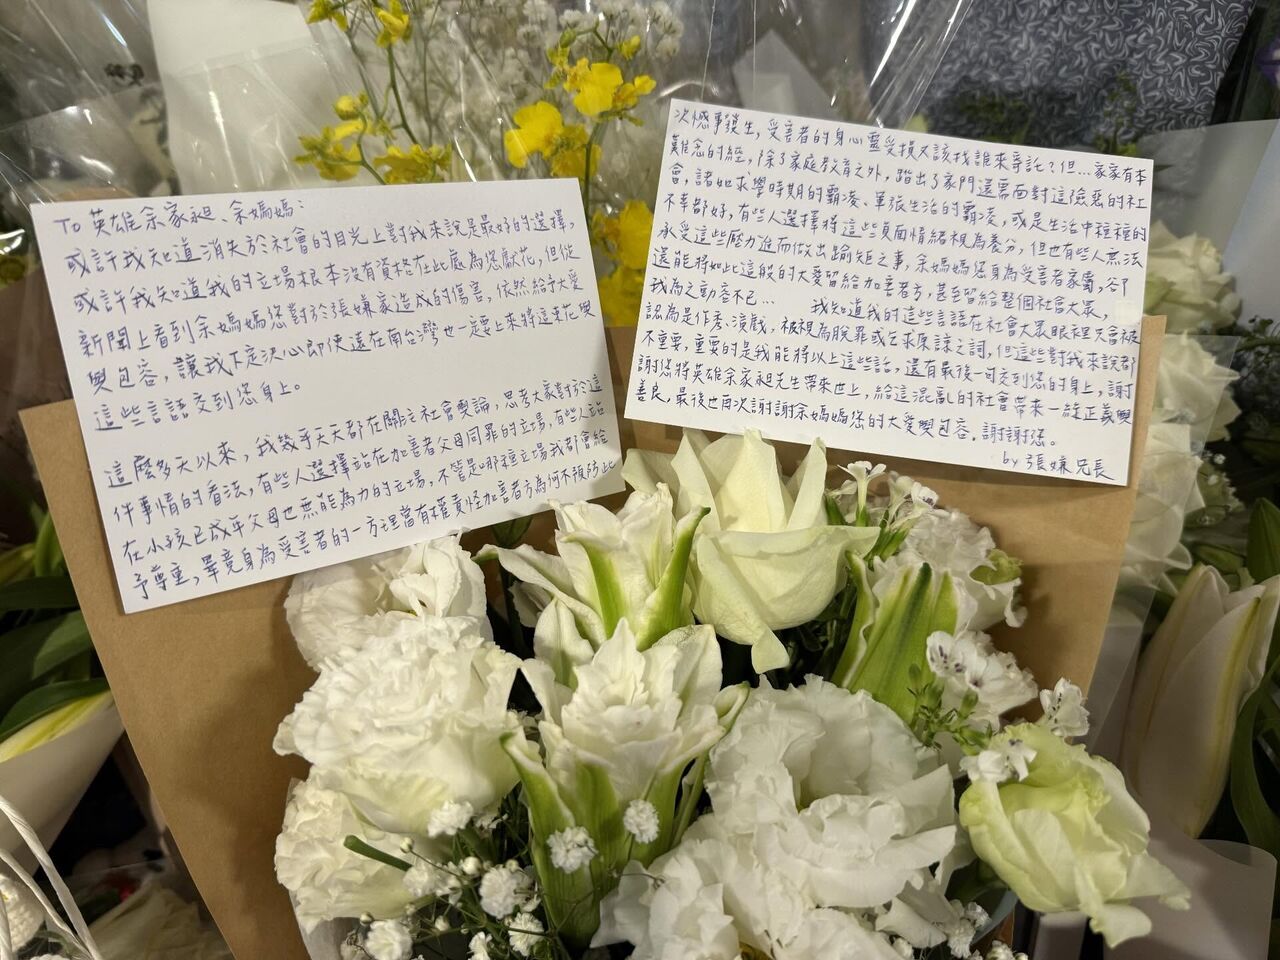 To 英雄余家昶、余媽媽：
或許我知道消失於社會的目光上對我來說是最好的選擇，
或許我知道我的立場根本沒有資格在此處為您獻花，但從
新聞上看到余媽媽您對於張嫌家造成的傷害，依然給予大愛
與包容，讓我下定決心即使遠在南台灣也一定要上來將這束花與
這些言語交到您身上。
這麼多天以來，我幾乎天天都在關注社會輿論，思考大家對於這
件事情的看法，有些人選擇站在加害者父母同罪的立場，有些人站
在小孩已成年父母也無能為力的立場，不管是哪種立場我都會給
予尊重，畢竟身為受害者的一方理當有權責怪加害者方為何不預防此
次憾事發生，受害者的身心靈受損又該找誰來寄託？但…家家有本
難念的經，除了家庭教育之外，踏出了家門還需面對這險惡的社
會，諸如求學時期的霸凌、軍旅生活的霸凌，或是生活中種種的
不幸都好，有些人選擇將這些負面情緒視為養分，但也有些人無法
承受這些壓力進而做出踰矩之事，余媽媽您身為受害者家屬，卻
還能將如此這般的大愛留給加害者方，甚至留給整個社會大眾，
我為之動容不已… 我知道我的這些言語在社會大眾眼裡只會被
認為是作秀、演戲，被視為脫罪或乞求原諒之詞，但這些對我來說都
不重要，重要的是我能將以上這些話，還有最後一句交到您的身上，謝
謝您將英雄余家昶先生帶來世上，給這混亂的社會帶來一絲正義與
善良，最後也再次謝謝余媽媽您的大愛與包容，謝謝您。
by 張嫌兄長